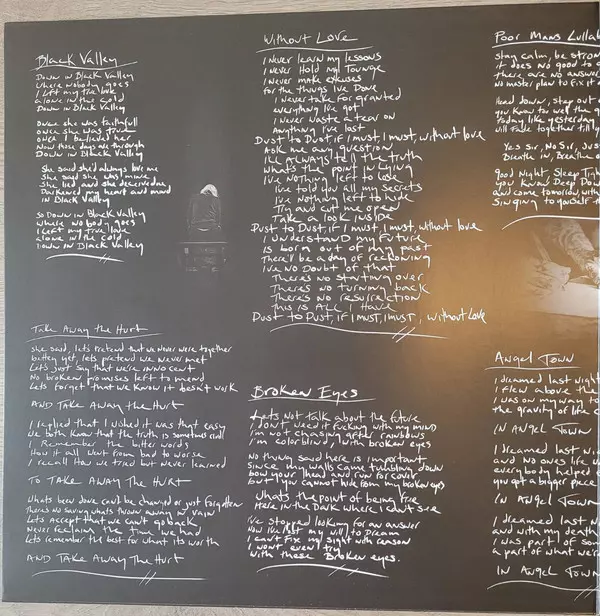 Black Valley
Down in Black Valley
where nobody goes
I left my true love
alone in the cold
Down in Black Valley
Once she was faithfull
once she was true
once I believed her
Now those days are through
Down in Black Valley
She said she'd always love me
She said she was mine
She lied and she deceived me
Darkened my heart and mind
in Black Valley
So Down in Black Valley
where nobody goes
I left my true love
alone in the cold
Down in Black Valley
Take Away the Hurt
She said, lets pretend that we never were together
better yet, lets pretend we never met
Lets just say that we're innocent
No broken promises left to mend
Lets forget that we know it doesn't work
AND Take Away the Hurt
I replied that I wished it was that easy
we both know that the truth is sometimes cruel
I Remember the bitter words
How it all went from bad to worse
I recall How we tried but never learned
TO Take Away the Hurt
Whats been done can't be changed or just forgotten
There's no saving whats thrown away in vain
Lets Accept that we can't go back
Never reclaim the time we had
Lets remember the best for what its worth
AND Take Away the Hurt
Without Love
I never learn my lessons
I never Hold my Tounge
I never make excuses
for the things I've Done
I never take for granted
everything I've got
I never waste a tear on
Anything I've lost
Dust to Dust, if I must, I must, without love
Ask me any question
I'll always tell the truth
Whats the point in Lying
I've nothing left to lose
I've told you all my secrets
I've nothing left to hide
Try and cut me open
Take a look inside
Dust to Dust if I must, I must, without love
I understand my future
is born out of my past
There'll be a day of reckoning
I've no Doubt of that
There's no starting over
There's no turning back
There's no resurrection
This is ALL I Have
Dust to Dust, if I must, I must, without Love
Broken Eyes
Lets not talk about the future
I don't need it fucking with my mind
I'm not chasing after rainbows
I'm colorblind, with broken eyes
No thing said here is important
since my walls came tumbling down
bow your head and run for cover
but you cannot hide from my broken eyes
Whats the point of being free
Here in the Dark where I can't see
I've stopped looking for an answer
Now I've lost my will to Dream
I can't fix my sight with reason
I won't even try
with these Broken eyes.
Poor Mans Lullab
Stay calm, be stron
it does no good to
there are no answer
No master plan to fix it
Head down, step out
you know to well the
today like yesterday
will fade together till
Yes Sir, No Sir, Just
Breathe in, Breathe o
Good Night, Sleep Tigh
you know Deep Dow
and come tomorrow with
Singing to yourself th
Angel Town
I dreamed last nigh
I flew above the
I was on my way to
the gravity of life c
IN Angel Town
I dreamed last nig
and no ones life w
everybody helped
you got a bigger piece
In Angel Town
I dreamed last n
and with my death
I was part of som
a part of what we'r
In Angel Town